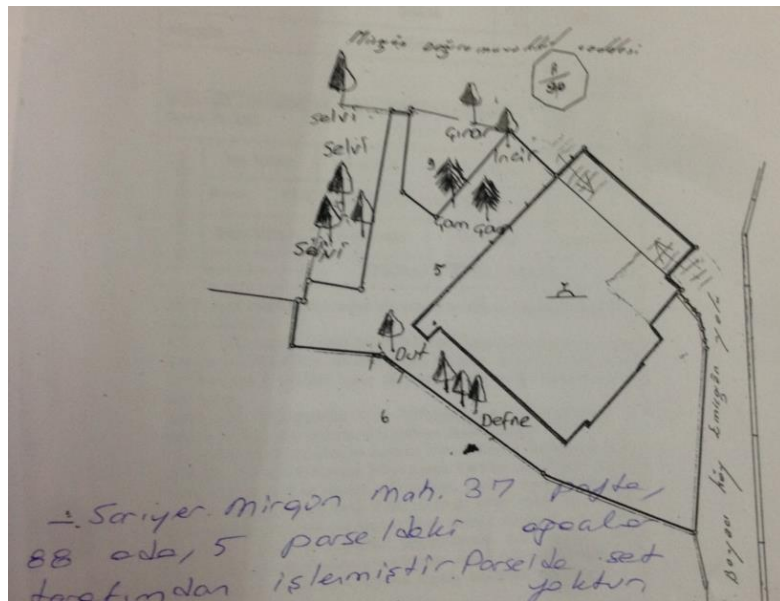 Mirgün Doğramacılık caddesi
8
90
selvi
Çınar
İncir
Selvi
9
Çam Çam
Selvi
5
Dut
Defne
6
Boyacı köy Emirgân yolu
Sarıyer Mirgün mah. 37 pafta,
88 ada, 5 parseldeki ağaçlar
tarafımdan işlenmiştir. Parselde set
yoktur